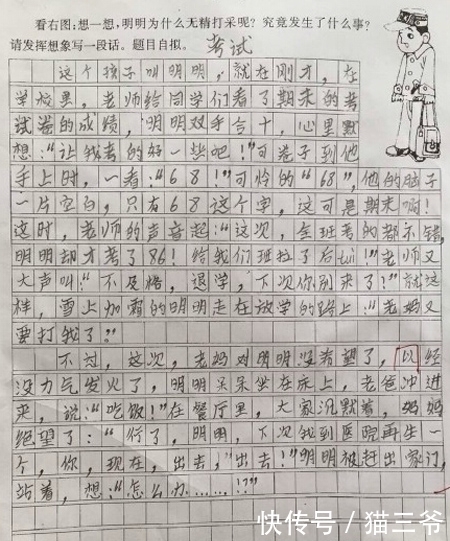 看右图:想一想,明明为什么无精打采呢?究竟发生了什么事?
请发挥想象写一段话。题目自拟。 考试
这个孩子叫明明,就在刚才,在
学校里,老师给同学们看了期末的考
试卷的成绩,明明双手合十,心里默
想:“让我考的好一些吧!”可卷子到他
手上时,一看:“68!”可怜的“68”,他的脑子
一片空白,只有68这个字,这可是期末啊!
这时,老师的声音起:“这次,全班考的都不错,
明明却才考了86!给我们班拉了后tui!”老师又
大声叫:“不及格,退学,下次你别来了!”就这
样,雪上加霜的明明走在放学的路上:“老妈又
要打我了!”
不过,这次,老妈对明明没希望了,以经
没力气发火了,明明呆呆坐在床上,老爸冲进
来,说:“吃饭!”在餐厅里,大家沉默着,妈妈
绝望了:“行了,明明,下次我到医院再生一
个,你,现在,出去,”出去!”明明被赶出家门,
站着,想:“怎么办……!?”
快传号/猫三爷